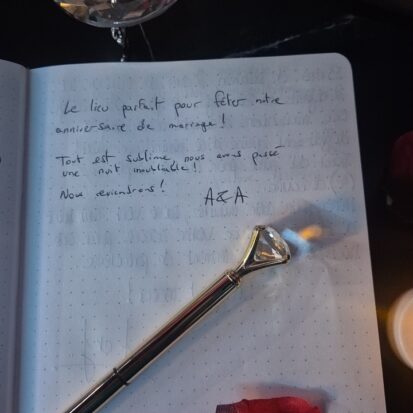 Le lieu parfait pour fêter notre
anniversaire de mariage !
Tout est sublime, nous avons passé
une nuit inoubliable !
Nous reviendrons !
A&A